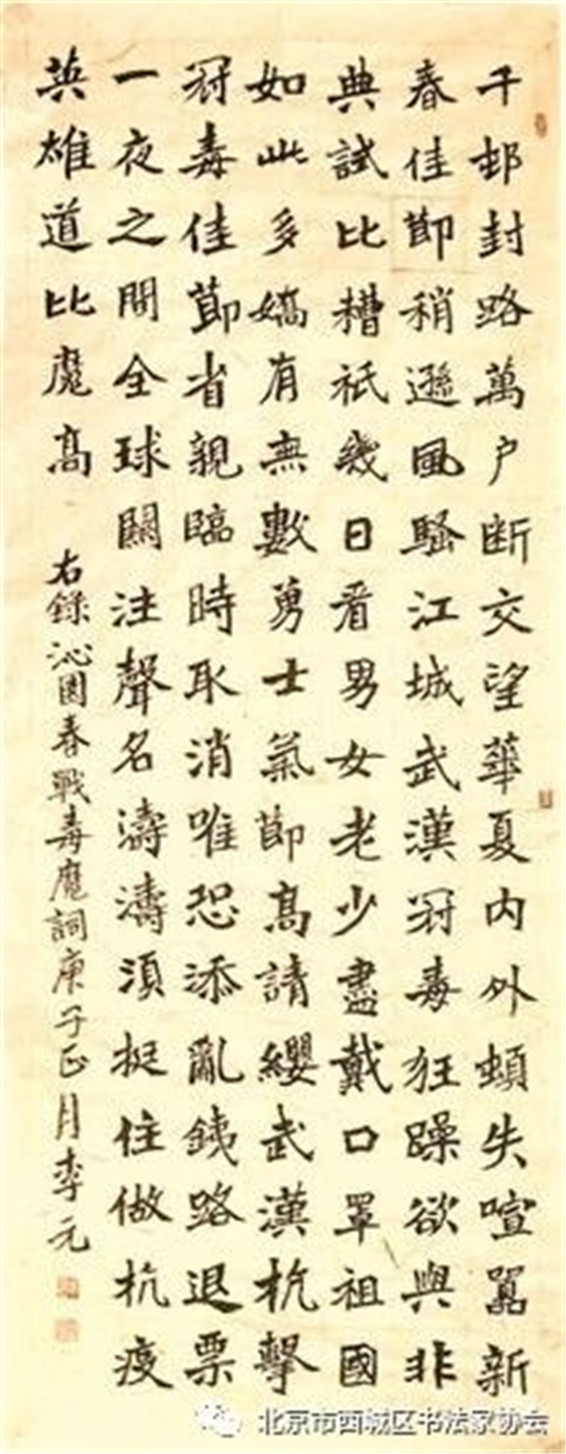 千邨封路萬户断交望華夏内外頓失喧囂新
春佳節稍遜風騷江城武漢冠毒狂躁欲與非
典試比糟祇幾日看男女老少盡戴口罩祖國
如此多嬌有無數勇士氣節高請纓武漢抗擊
冠毒佳節省親臨時取消唯恐添亂銕路退票
一夜之間全球關注聲名濤濤須挺住做抗疫
英雄道比魔高
右錄沁園春戰毒魔詞庚子正月李元
北京市西城区书法家协会